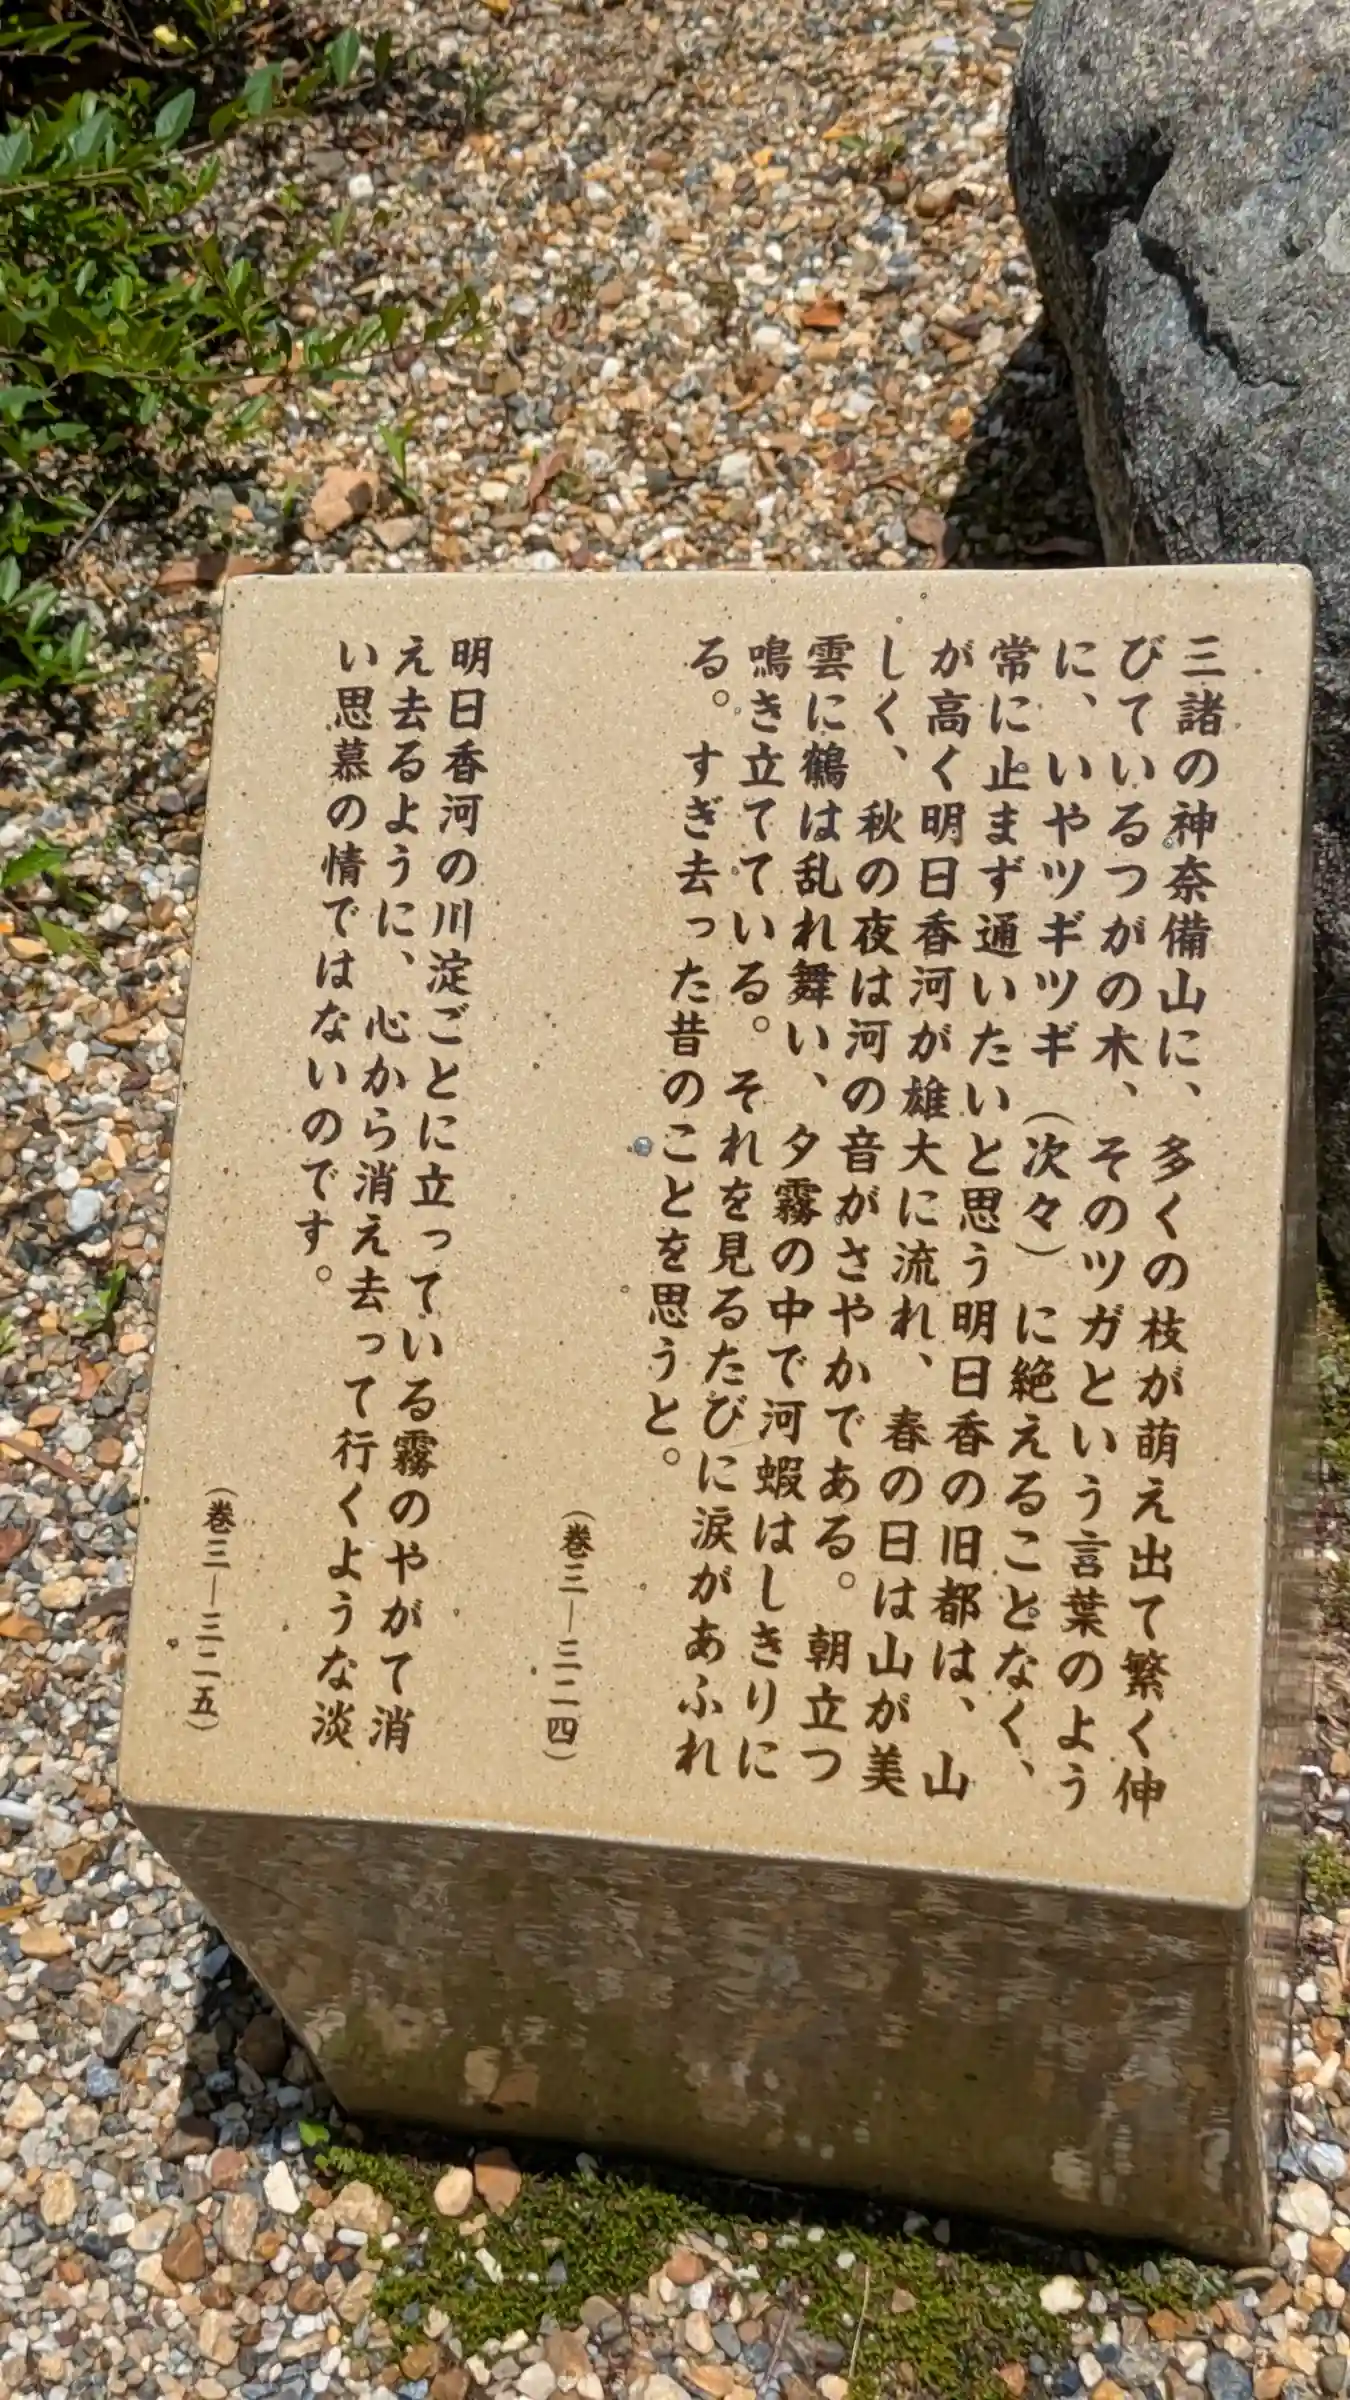 三諸の神奈備山に、多くの枝が萌え出て繁く伸
びているつがの木、そのツガという言葉のよう
に、いやツギツギ（次々）に絶えることなく、
常に止まず通いたいと思う明日香の旧都は、山
が高く明日香河が雄大に流れ、春の日は山が美
しく、秋の夜は河の音がさやかである。朝立つ
雲に鶴は乱れ舞い、夕霧の中で河蝦はしきりに
鳴き立てている。それを見るたびに涙があふれ
る。すぎ去った昔のことを思うと。
（巻三―三二四）
明日香河の川淀ごとに立っている霧のやがて消
え去るように、心から消え去って行くような淡
い思慕の情ではないのです。
（巻三―三二五）